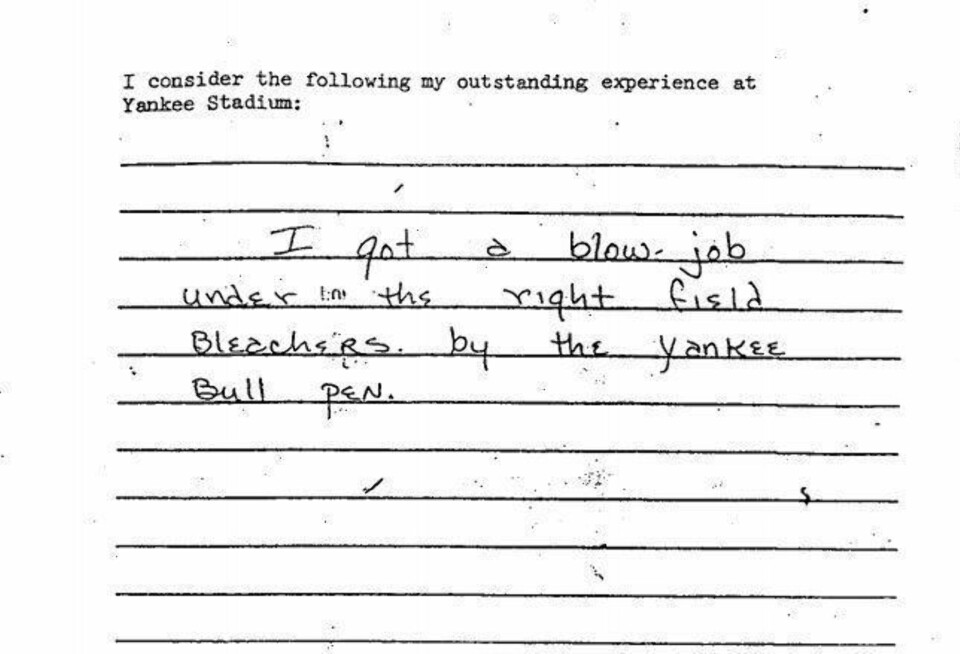 I consider the following my outstanding experience at
Yankee Stadium:
I got a blow-job
under the right field
BleachERS. by the YanKEE
Bull pEN.